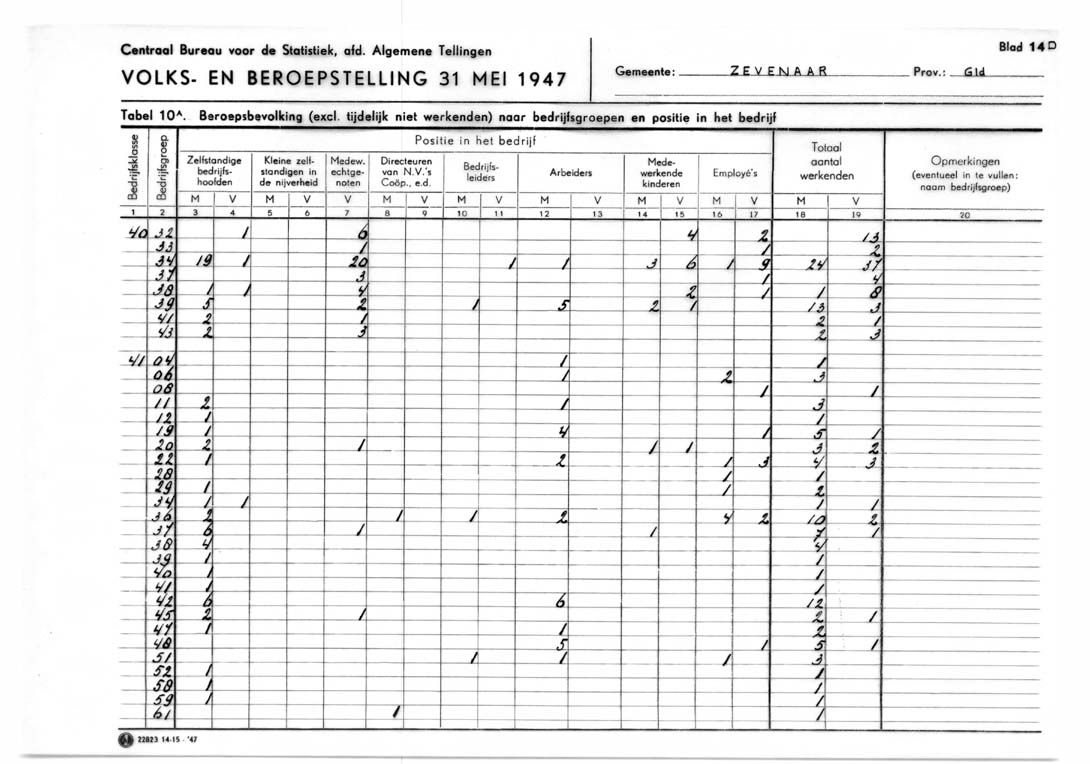 Centraal Bureau voor de Statistiek, afd. Algemene Tellingen
Blad 14D
VOLKS- EN BEROEPSTELLING 31 MEI 1947
Gemeente: ZEVENAAR Prov.: Gld
Tabel 10A. Beroepsbevolking (excl. tijdelijk niet werkenden) naar bedrijfsgroepen en positie in het bedrijf
Bedrijfsklasse
Bedrijfsgroep
Positie in het bedrijf
Zelfstandige bedrijfs-hoofden
Kleine zelf-standigen in de nijverheid
Medew. echtge-noten
Directeuren van N.V.'s Coöp., e.d.
Bedrijfs-leiders
Arbeiders
Mede-werkende kinderen
Employé's
Totaal aantal werkenden
Opmerkingen (eventueel in te vullen: naam bedrijfsgroep)
M V M V V M V M V M V M V M V M V
1 2 3 4 5 6 7 8 9 10 11 12 13 14 15 16 17 18 19 20
40 32 1 6 4 2 13
33 1 1 2
34 19 1 20 1 1 3 6 1 9 24 37
37 3 1 4
38 1 1 4 2 1 1 8
39 5 2 1 5 2 1 13 3
41 2 1 2 1
43 2 3 2 3
41 04 1 1
06 1 2 3
08 1 1
11 2 1 3
12 1 1
19 1 4 1 5 1
20 2 1 1 1 3 2
22 1 2 1 3 4 3
28 1 1
29 1 1 2
34 1 1 1 1
36 2 1 1 2 4 2 10 2
37 6 1 1 7 1
38 4 4
39 1 1
40 1 1
41 1 1
42 6 6 12
45 2 1 2 1
47 1 1 2
48 5 1 5 1
51 1 1 1 3
52 1 1
58 1 1
59 1 1
61 1 1
22823 14-15 - '47